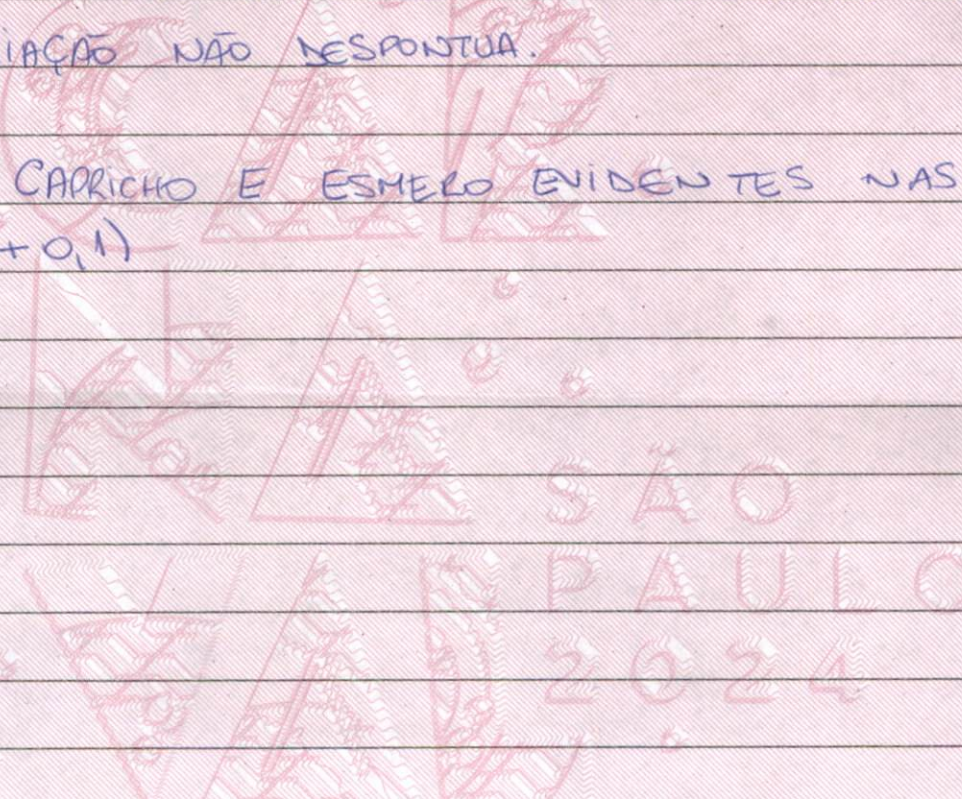 IAÇÃO NÃO DESPONTUA.
CAPRICHO E ESMERO EVIDENTES NAS
+0,1)
SÃO
PAULO
2024